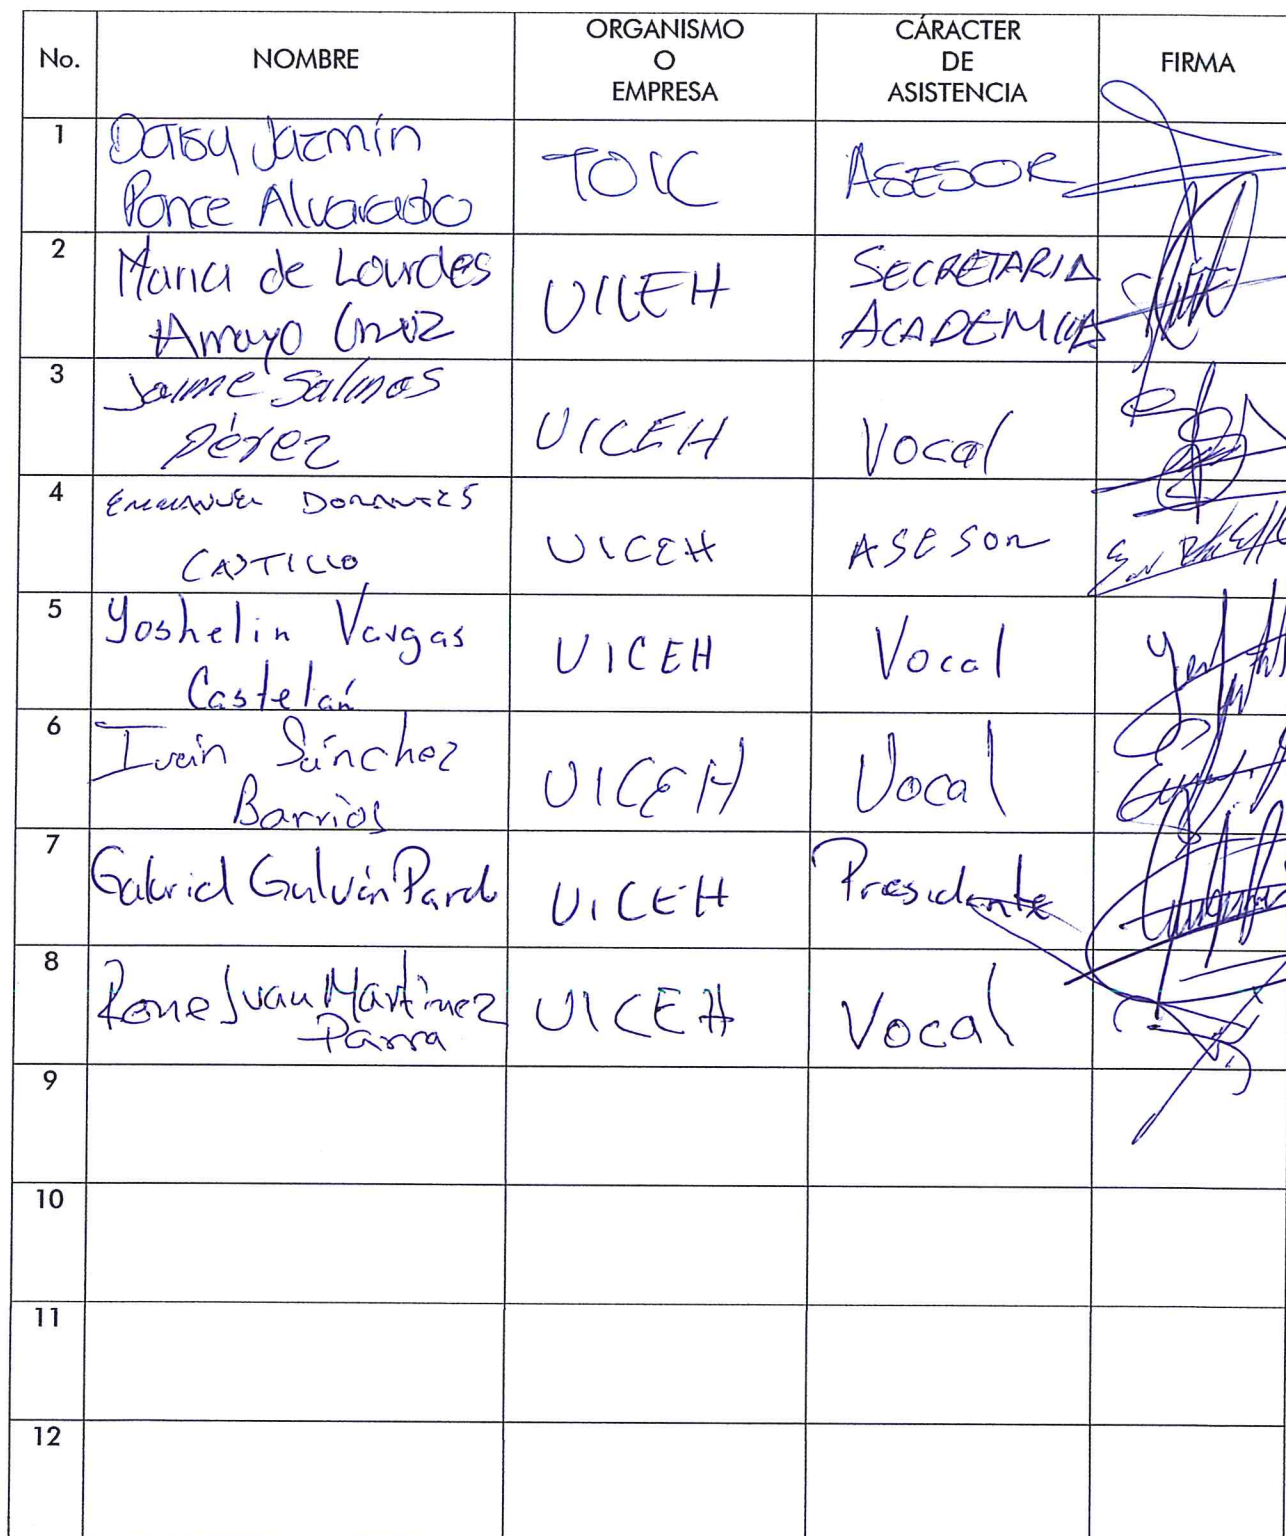 No. NOMBRE ORGANISMO O EMPRESA CÁRACTER DE ASISTENCIA FIRMA
1 Daisy Jazmín Ponce Alvarado TOIC ASESOR
2 Maria de Lourdes Arroyo Cruz UICEH SECRETARIA ACADEMICA
3 Jaime Salinas Pérez UICEH Vocal
4 EMMANUEL DORANTES CASTILLO UICEH ASESOR
5 Yoshelin Vargas Castelán UICEH Vocal
6 Iván Sánchez Barrios UICEH Vocal
7 Gabriel Galván Pardo UICEH Presidente
8 Rene Juan Martínez Parra UICEH Vocal
9
10
11
12